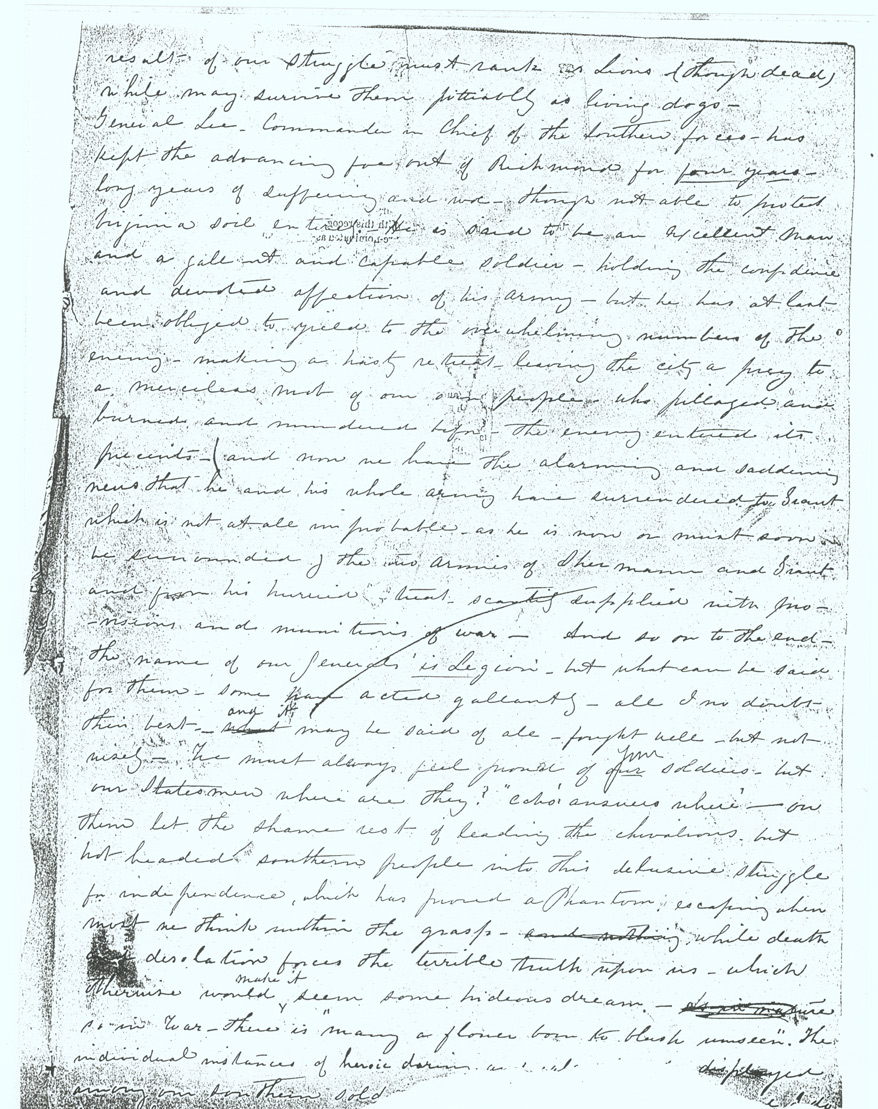 result of our struggle must rank as Lions (though dead)
while many survive them pitiably as living dogs -
General Lee - Commander in Chief of the Southern forces - has
kept the advancing foe out of Richmond for four years -
long years of suffering and woe - though not able to protect
Virginia soil entirely. He is said to be an excellent man
and a gallant and capable soldier - holding the confidence
and devoted affection of his army - but he has at last
been obliged to yield to the overwhelming numbers of the
enemy - making a hasty retreat - leaving the city a prey to
a merciless mob of our own people - who pillaged and
burned and murdered before the enemy entered its
precincts - (and now we have the alarming and saddening
news that he and his whole army have surrendered to Grant
which is not at all improbable - as he is now or must soon
be surrounded by the two armies of Shermann and Grant
and from his hurried retreat - scantily supplied with pro-
-visions and munitions of war - And so on to the end -
the name of our Generals 'is Legion' - but what can be said
for them - some have acted gallantly - all I no doubt
their best - and it may be said of all - fought well - but not
wisely - We must always feel proud of our soldiers - but
our Statesmen where are they? "echo answers where" - on
them let the shame rest of leading the chivalrous but
hot headed southern people into this delusive struggle
for independence, which has proved a Phantom, escaping when
most we think within the grasp - and nothing while death
desolation forces the terrible truth upon us - which
otherwise would make it seem some hideous dream. -
so in War - there is "many a flower born to blush unseen". The
individual instances of heroic daring displayed
among our Southern sold